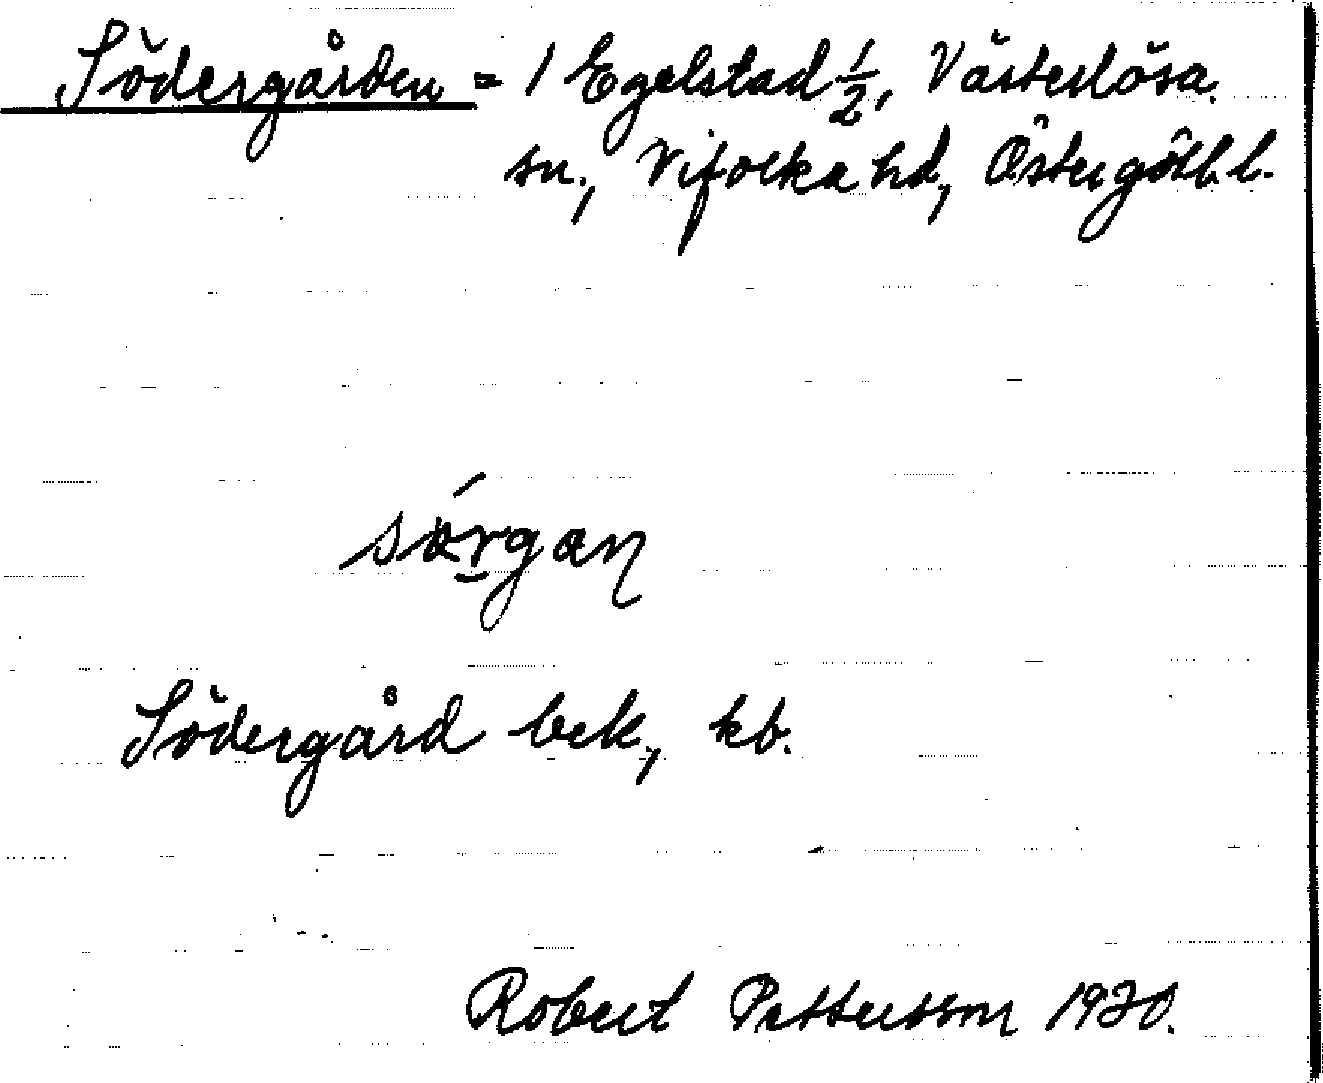 Södergården = 1 Egelstad ½, Västerlösa
sn., Vifolka hd, Östergötl. l.
sörgan
Södergård bek, kb.
Robert Pettersson 1930.